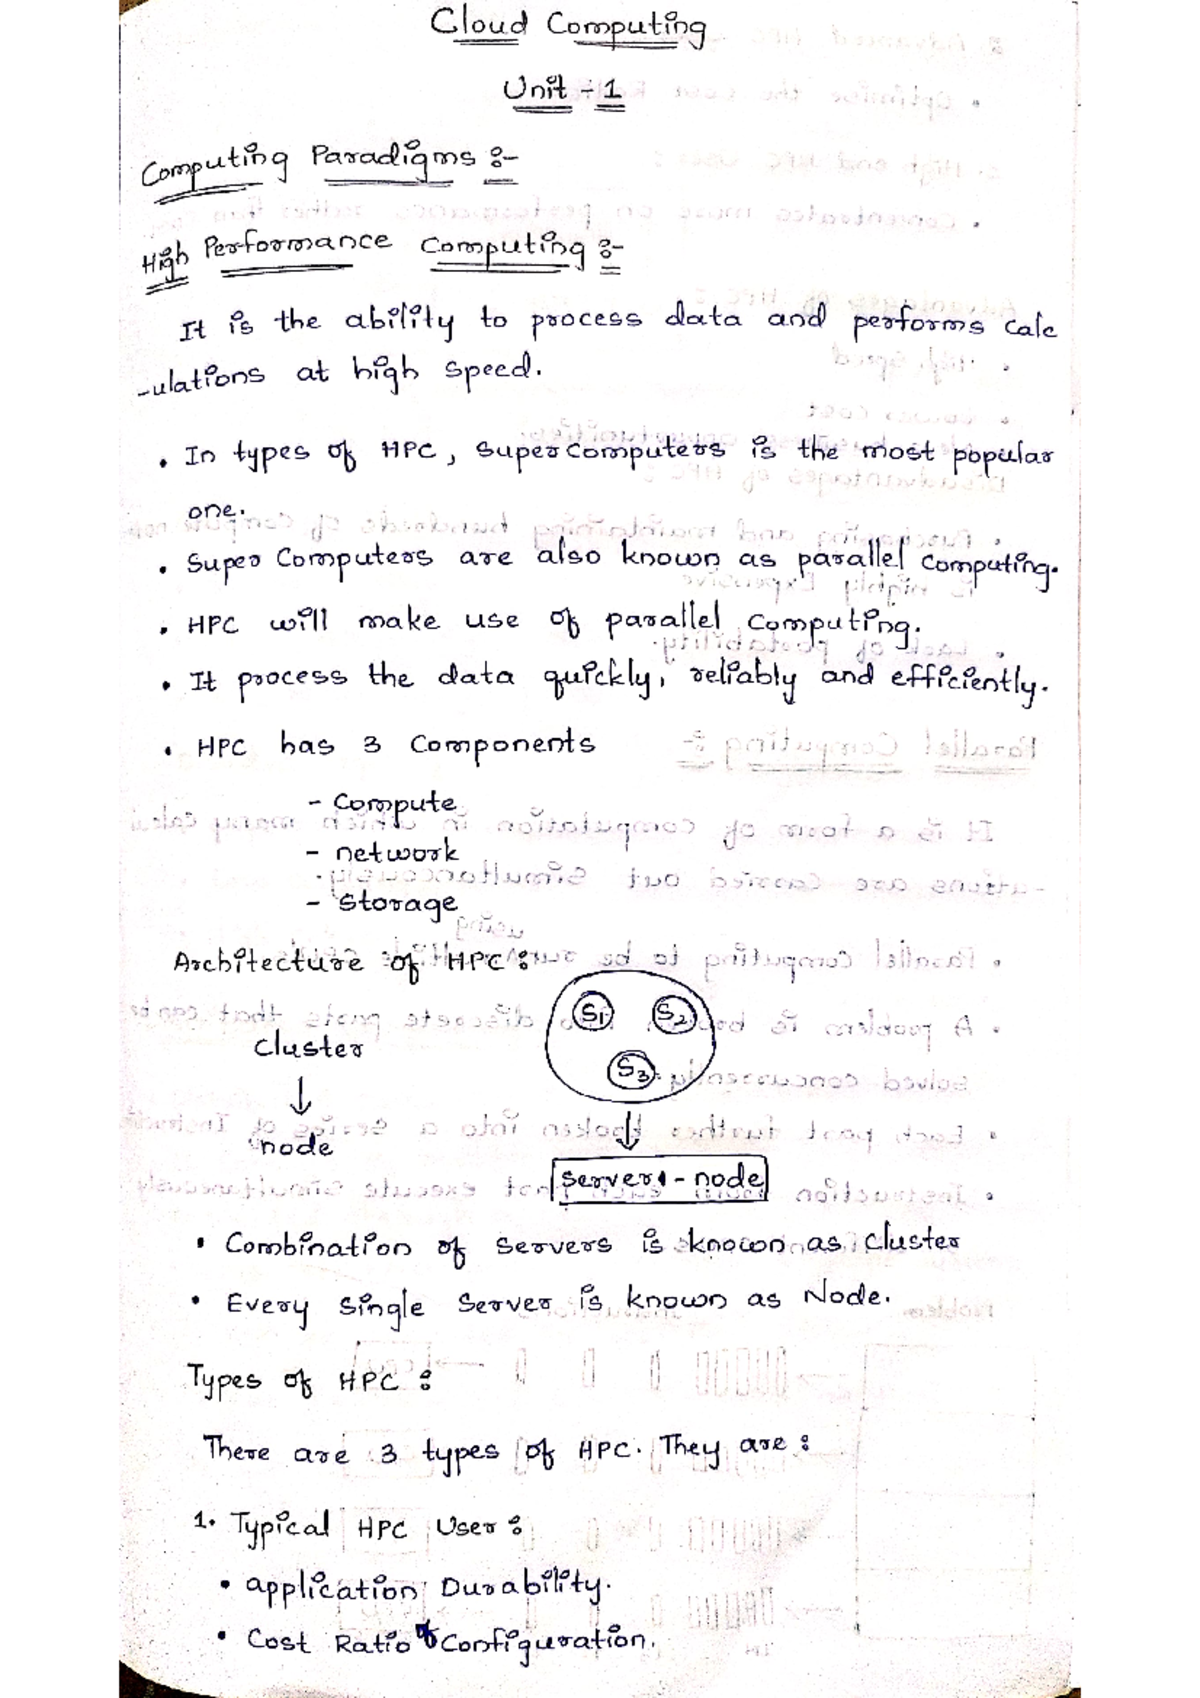 Cloud Computing
Unit - 1
Computing Paradigms :-
High Performance Computing :-
It is the ability to process data and performs calc
-ulations at high speed.
• In types of HPC, Super Computers is the most popular
one.
• Super Computers are also known as parallel Computing.
• HPC will make use of parallel Computing.
• It process the data quickly, reliably and efficiently.
• HPC has 3 Components
- Compute
- network
- Storage
Architecture of HPC :
S1 S2
Cluster
S3
↓
↓
node
Server 1 - node
• Combination of Servers is known as Cluster
• Every Single Server is known as Node.
Types of HPC :
There are 3 types of HPC. They are :
1. Typical HPC User :
• application Durability.
• Cost Ratio Configuration.